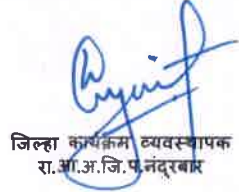 जिल्हा कार्यक्रम व्यवस्थापक
रा.आ.अ.जि.प.नंदुरबार